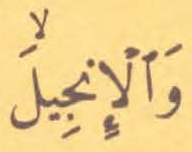 وَٱلْإِنجِيلَۙ